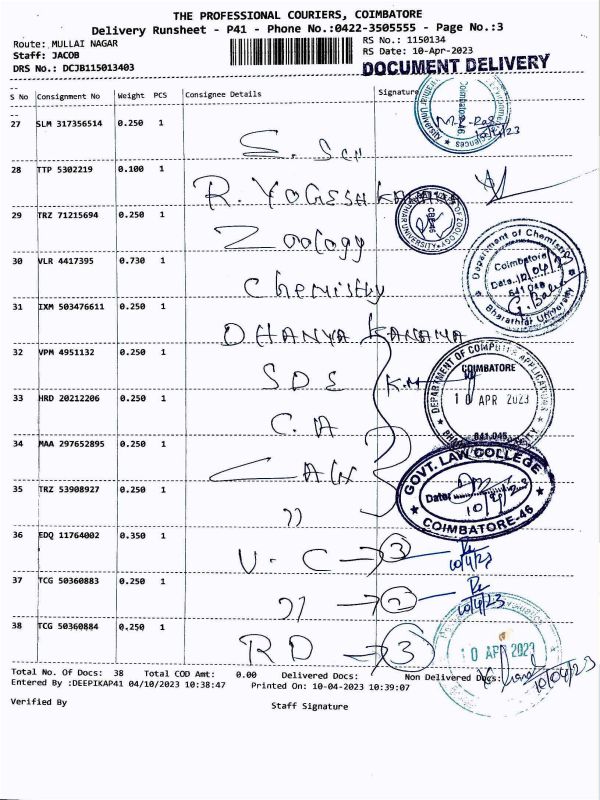 THE PROFESSIONAL COURIERS, COIMBATORE
Delivery Runsheet - P41 - Phone No.:0422-3505555 - Page No.:3
Route: MULLAI NAGAR
RS No.: 1150134
Staff: JACOB
RS Date: 10-Apr-2023
DRS No.: DCJB115013403
DOCUMENT DELIVERY
S No Consignment No Weight PCS Consignee Details Signature
27 SLM 317356514 0.250 1
S. Sci
Coimbatore-46
10/4/23
28 TTP 5302219 0.100 1
R. YOGESHKANNAN
29 TRZ 71215694 0.250 1
Zoology
30 VLR 4417395 0.730 1
Chemistry
Department of Chemistry
Coimbatore
Date 10/04/23
641 046
Bharathiar University
31 IXM 503476611 0.250 1
DHANYA KANAMA
32 VPM 4951132 0.250 1
SDE K.M
33 HRD 20212206 0.250 1
C.A
DEPARTMENT OF COMPUTER APPLICATIONS
COIMBATORE
10 APR 2023
641 046
34 MAA 297652895 0.250 1
LAW
GOVT. LAW COLLEGE
Date: 10/4/23
COIMBATORE-46
35 TRZ 53908927 0.250 1
"
36 EDQ 11764002 0.350 1
V.C → 3
10/4/23
37 TCG 50360883 0.250 1
" → 2
10/4/23
38 TCG 50360884 0.250 1
RD → 3
10 APR 2023
10/04/23
Total No. Of Docs: 38 Total COD Amt: 0.00 Delivered Docs: Non Delivered Docs:
Entered By :DEEPIKAP41 04/10/2023 10:38:47 Printed On: 10-04-2023 10:39:07
Verified By
Staff Signature